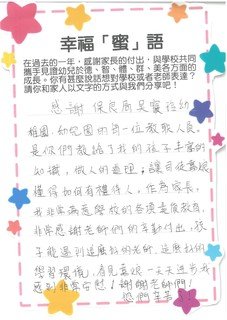 幸福「蜜」語
在過去的一年，感謝家長的付出，與學校共同
攜手見證幼兒於德、智、體、群、美各方面的
成長。你有甚麼說話想對學校或者老師表達？
請你和家人以文字的方式與我們分享吧！
感謝 保良局吳寶福幼
稚園,幼兒園的每一位教職人員,
是你們教語了我的孩子豐富的
知識,做人的道理;讓我從嘉懿
懂得如何有禮待人,作為家長,
我非常滿意學校的各項嘉度教育,
非常感謝老師們的辛勤付出,孩
子能遇到這麼好的老師,這麼好的
學習環境,看見嘉懿一天天進步我
感到非常安慰!謝謝老師們!
您們辛苦了!